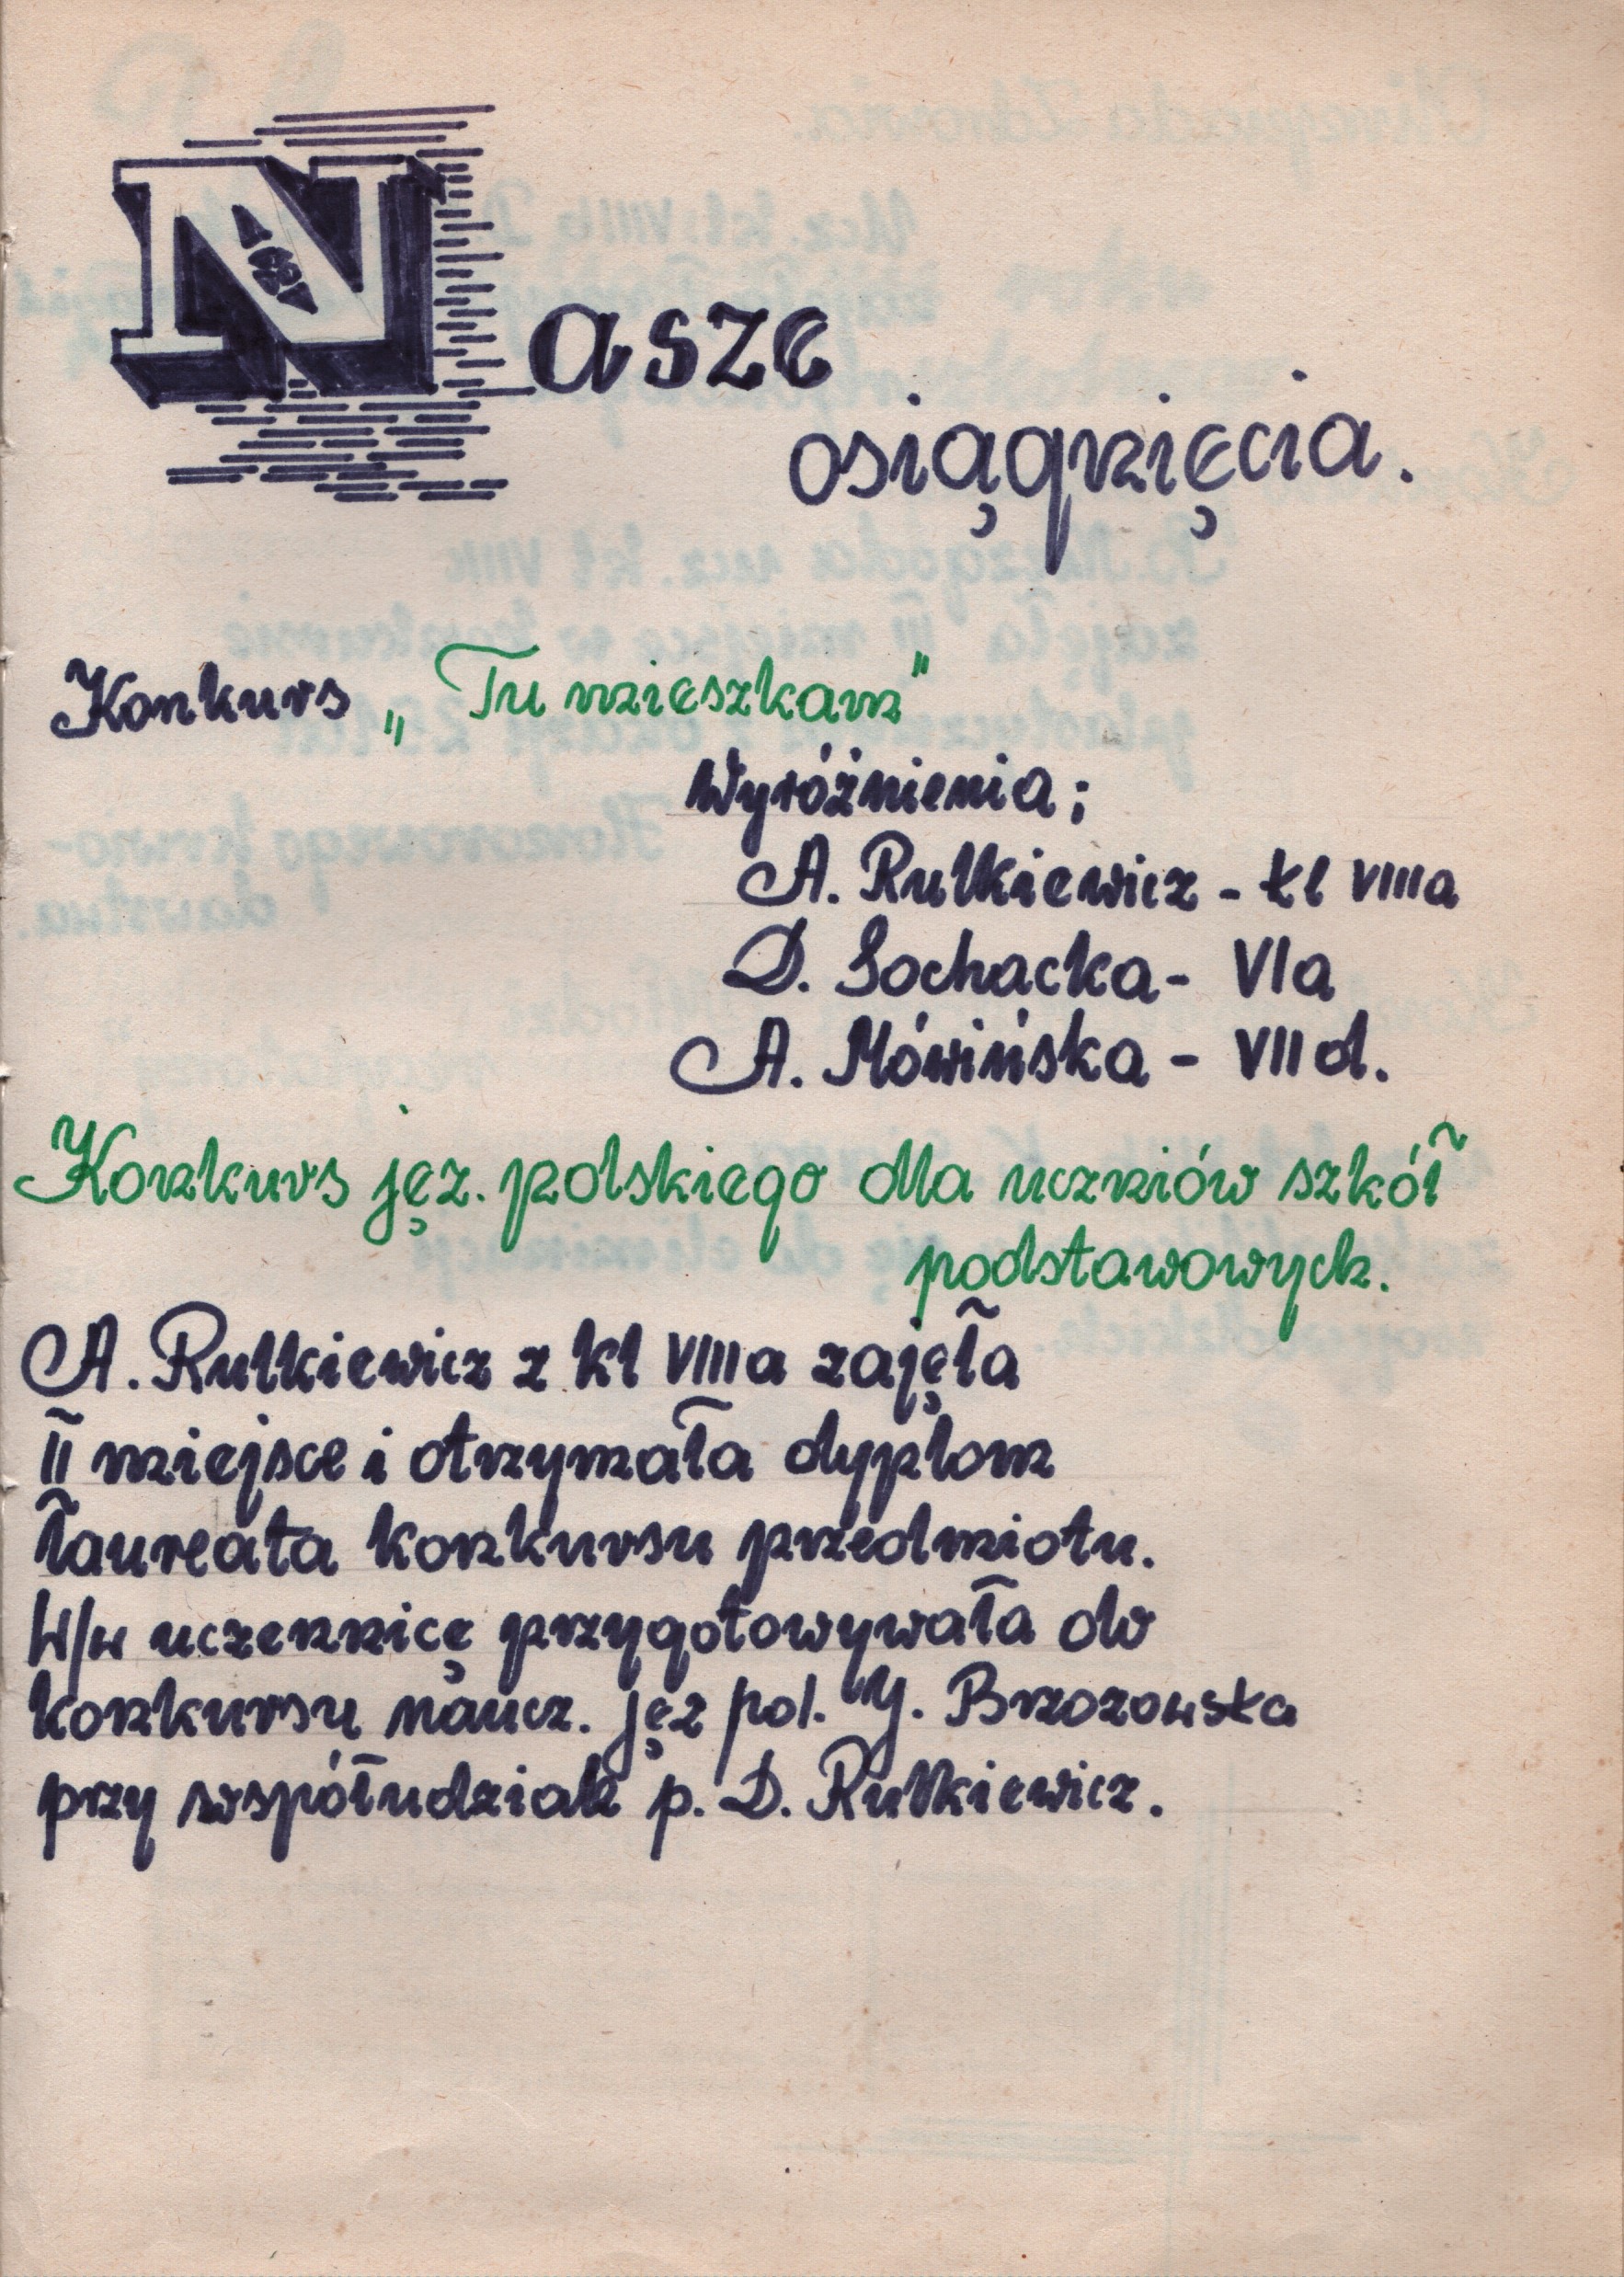 Nasze
osiągnięcia.
Konkurs „Tu mieszkam"
Wyróżnienia;
A. Rutkiewicz - kl VIIIa
D. Sochacka - VIa
A. Mówińska - VII d.
Konkurs jęz. polskiego dla uczniów szkół
podstawowych.
A. Rutkiewicz z kl VIIIa zajęła
II miejsce i otrzymała dyplom
laureata konkursu przedmiotu.
W/w uczennicę przygotowywała do
konkursu naucz. jęz pol. Y. Brzozowska
przy współudziale p. D. Rutkiewicz.